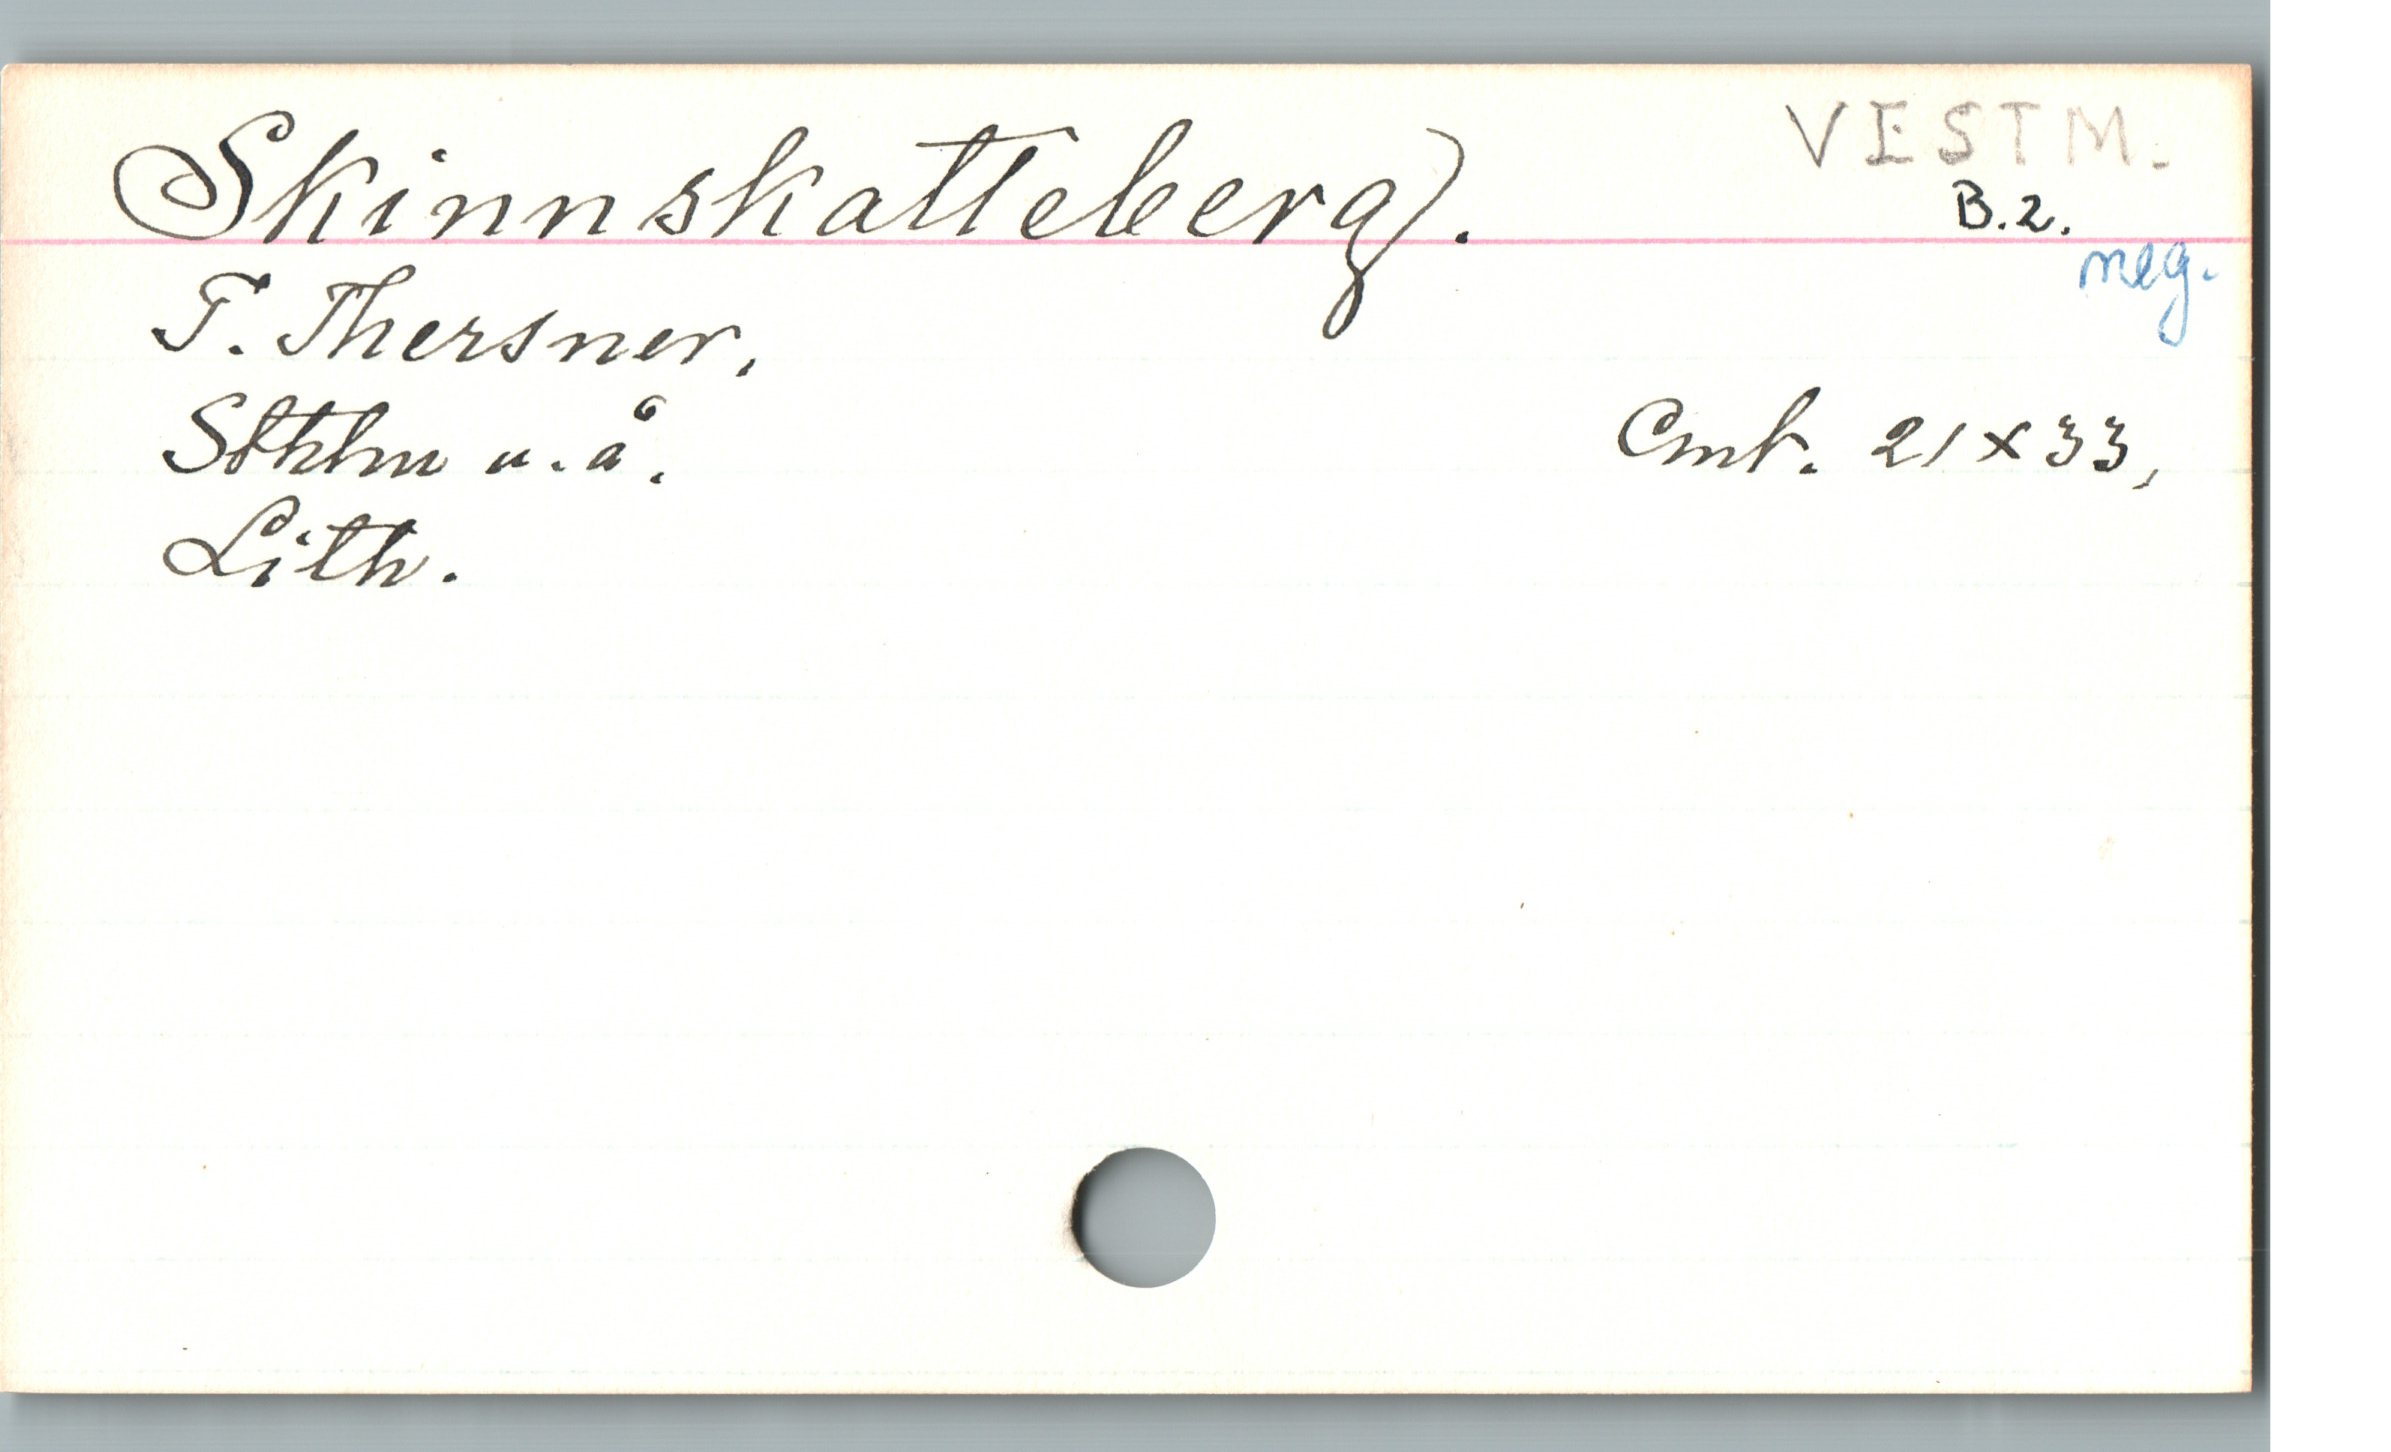 Skinnskatteberg.
VESTM.
B.2.
neg.
T. Thersner,
Sthlm u. å.
Cmt. 21 x 33,
Lith.